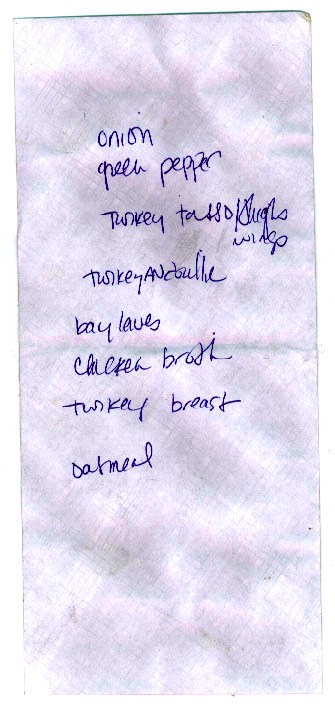 onion
green pepper
Turkey tasso/thighs
wings
turkey Andouille
bay leaves
chicken broth
turkey breast
oatmeal